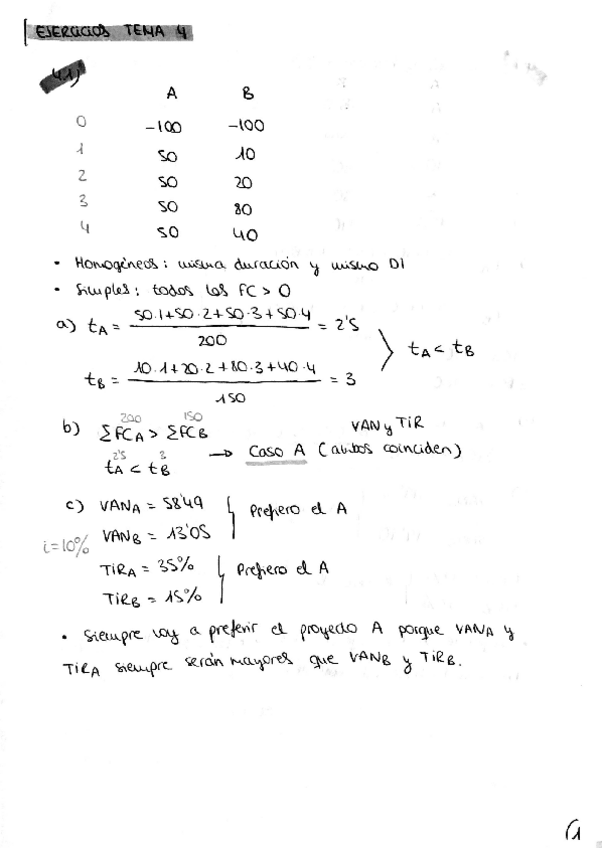 EJERCICIOS TEMA 4
4.1)
A B
0 -100 -100
1 50 10
2 50 20
3 50 80
4 50 40
• Homogéneos: misma duración y mismo DI
• Simples: todos los FC > 0
a) tA = 50·1+50·2+50·3+50·4 / 200 = 2'5
tA < tB
tB = 10·1+20·2+80·3+40·4 / 150 = 3
200 150
b) ΣFCA > ΣFCB
VAN y TIR
→ Caso A (ambos coinciden)
2'5 3
tA < tB
c) VANA = 58'49
Prefiero el A
i=10% VANB = 13'05
TIRA = 35%
Prefiero el A
TIRB = 15%
• Siempre voy a preferir el proyecto A porque VANA y
TIRA siempre serán mayores que VANB y TIRB.
1